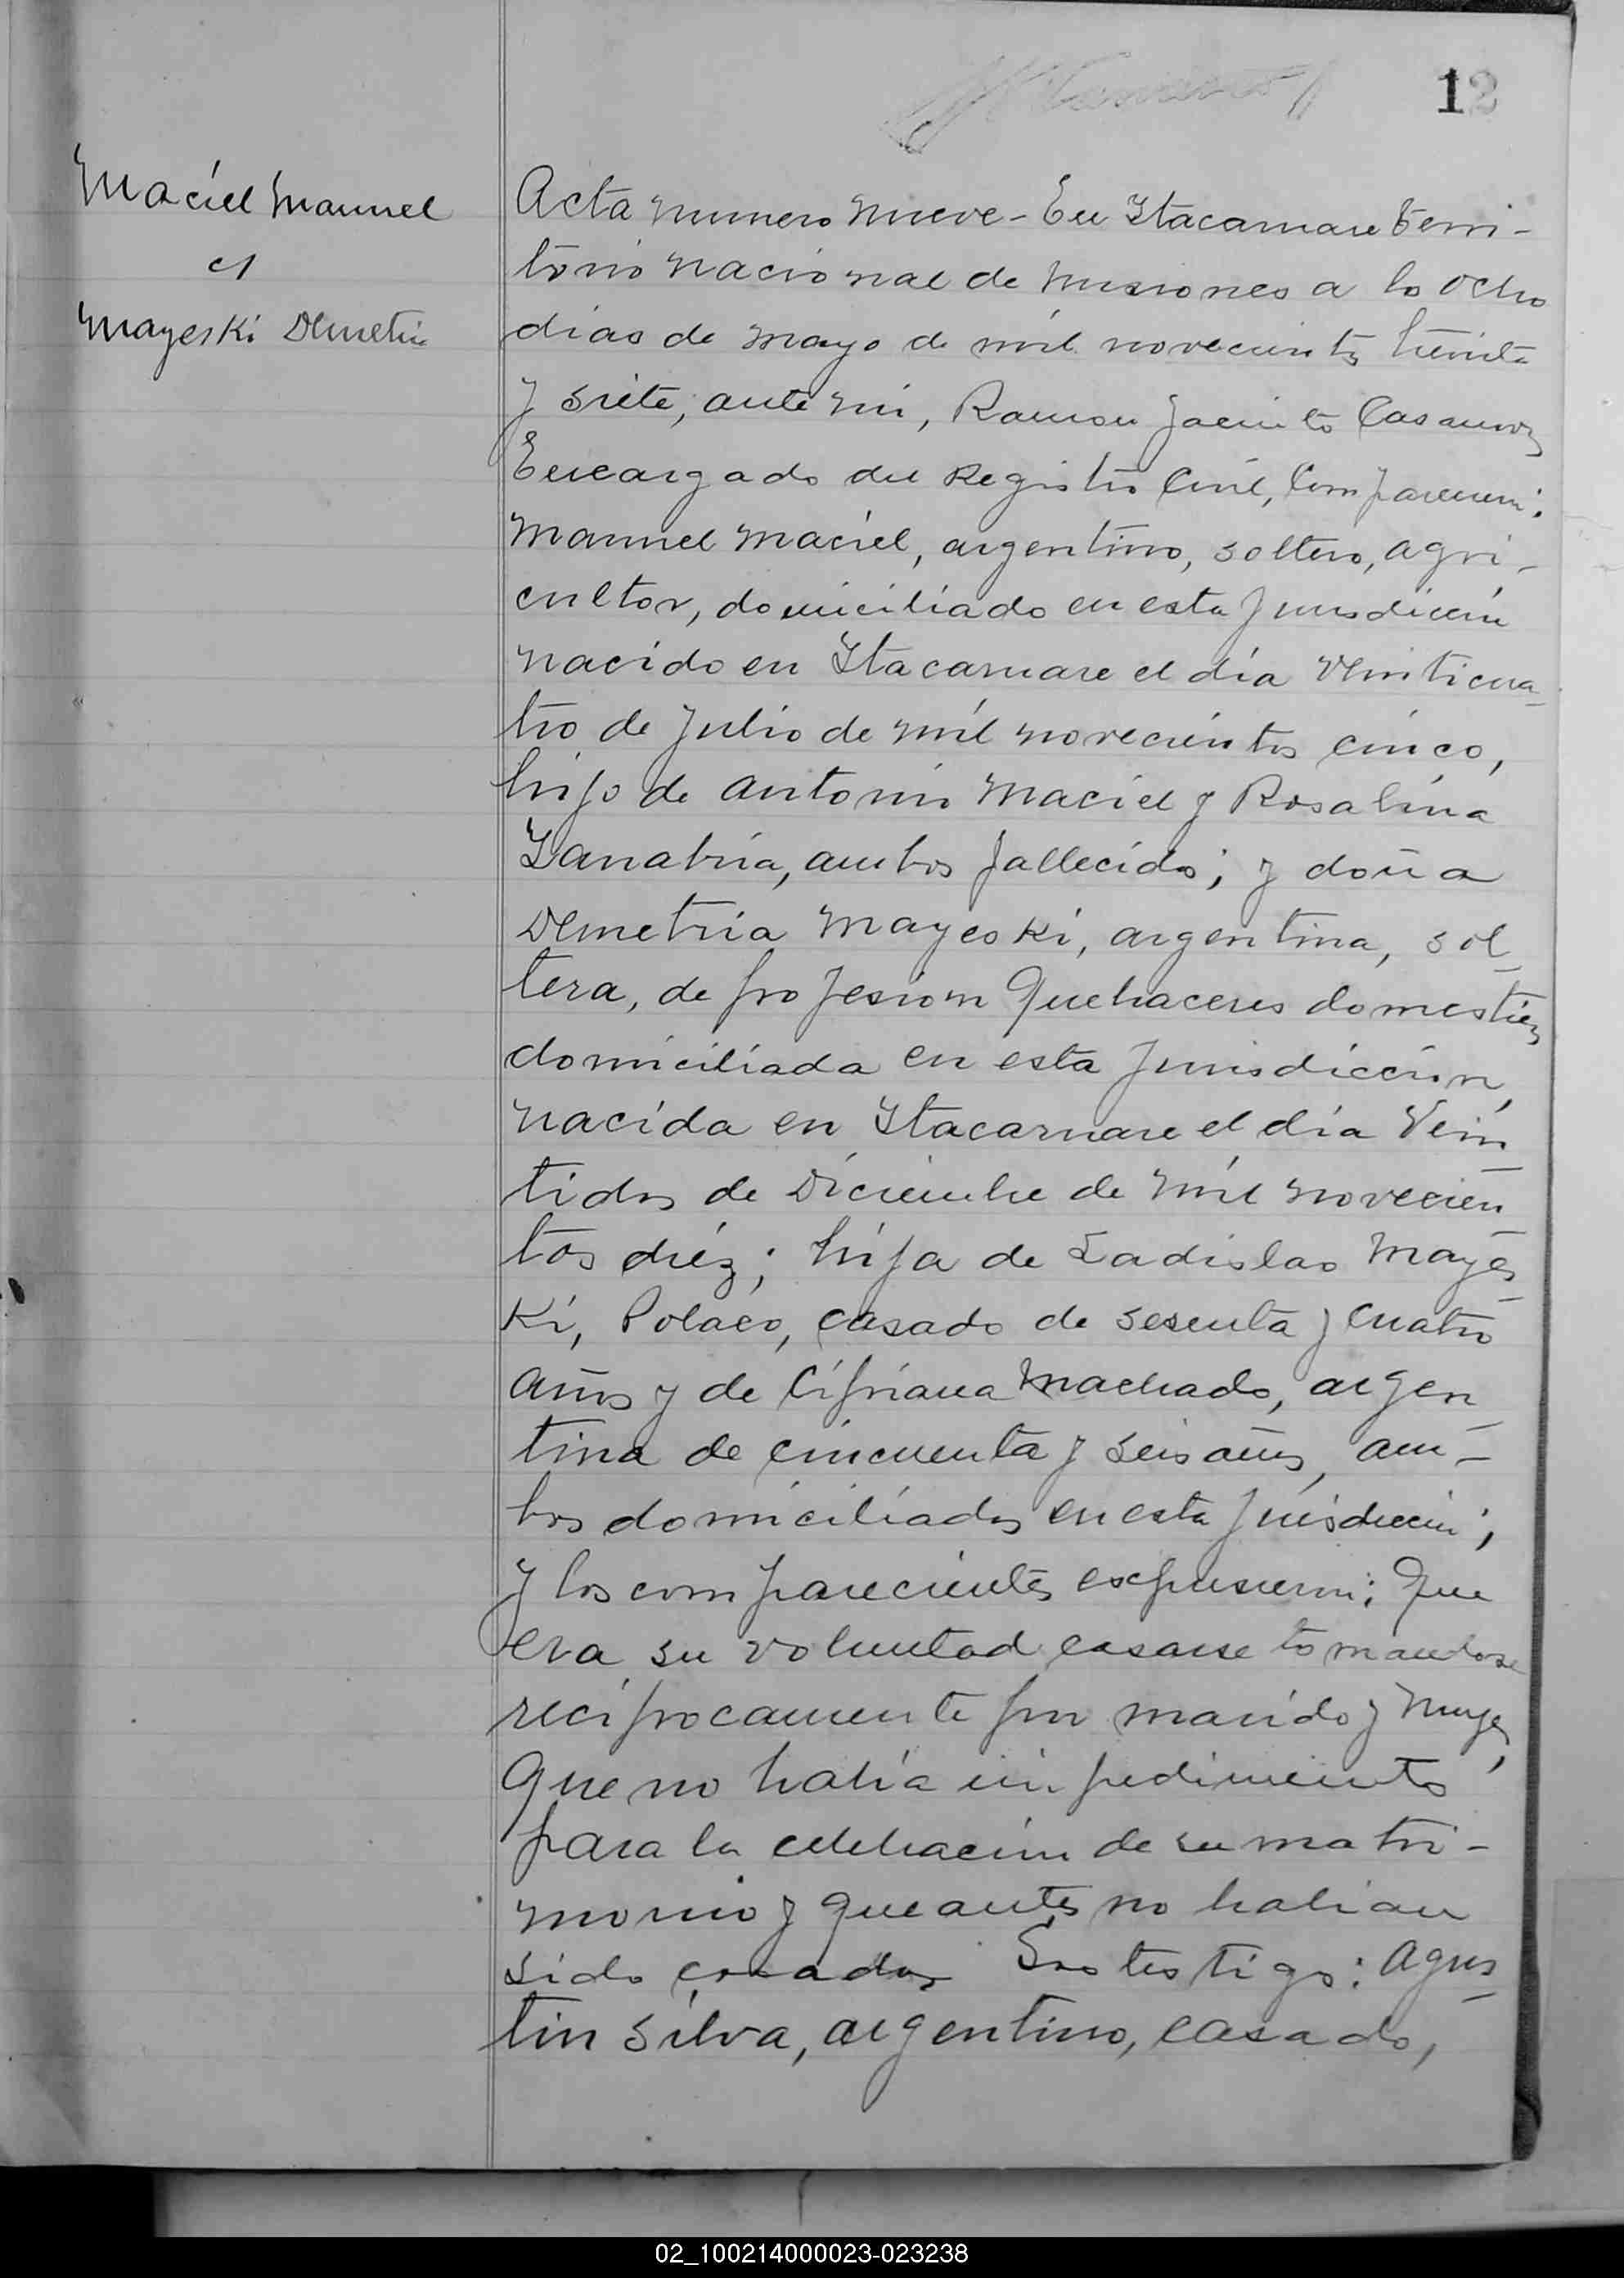 12
Maciel Manuel
c/
Mayeski Demetria
Acta numero nueve - En Itacaruare Terri-
torio nacional de Misiones a lo ocho
dias de Mayo de mil novecientos treinta
y siete, ante mi, Ramon Jacinto Casanova
Encargado del Registro Civil, Comparecen:
Manuel Maciel, argentino, soltero, agri-
cultor, domiciliado en esta Jurisdicción
nacido en Itacaruare el día veinticua-
tro de Julio de mil novecientos cinco,
hijo de Antonio Maciel y Rosalina
Zanabria, ambos fallecidos; y doña
Demetria Mayeski, argentina, sol-
tera, de profesion Quehaceres domesticos
domiciliada en esta Jurisdiccion,
nacida en Itacaruare el día Vein-
tidos de Diciembre de mil novecien
tos diéz; hija de Ladislao Mayes-
ki, Polaco, casado de sesenta y cuatro
años y de Cipriana Machado, argen-
tina de cincuenta y seis años, am-
bos domiciliados en esta Jurisdiccion;
y los comparecientes expusieron: Que
era su voluntad casarse tomandose
reciprocamente por marido y Mujer,
Que no había impedimento
para la celebracion de su matri-
monio y que antes no habian
sido casados Sus testigos: Agus-
tin Silva, argentino, casado,
02_100214000023-023238